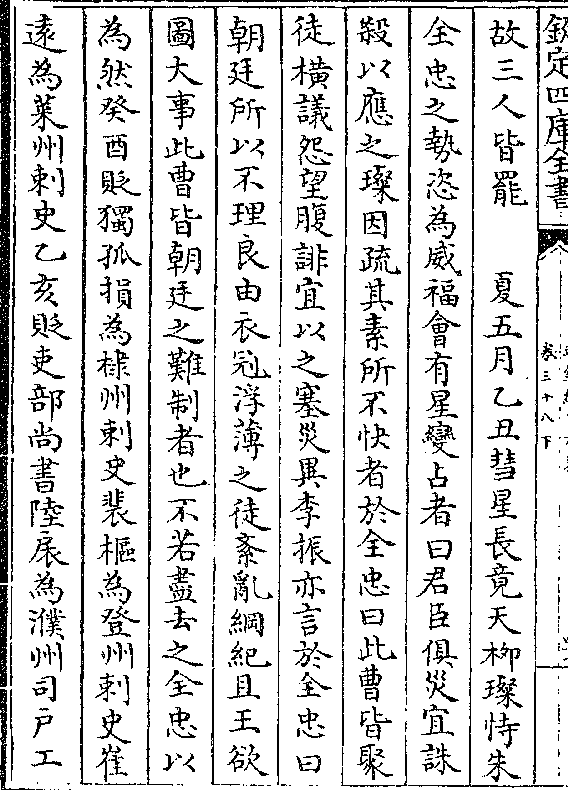 欽定四庫全書
卷三十八下
故三人皆罷　夏五月乙丑彗星長竟天柳璨恃朱
全忠之勢恣為威福會有星變占者曰君臣俱災宜誅
殺以應之璨因疏其素所不快者於全忠曰此曹皆聚
徒橫議怨望腹誹宜以之塞災異李振亦言於全忠曰
朝廷所以不理良由衣冠浮薄之徒紊亂綱紀且王欲
圖大事此曹皆朝廷之難制者也不若盡去之全忠以
為然癸酉貶獨孤損為棣州刺史裴樞為登州刺史崔
遠為萊州刺史乙亥貶吏部尚書陸扆為濮州司戶工